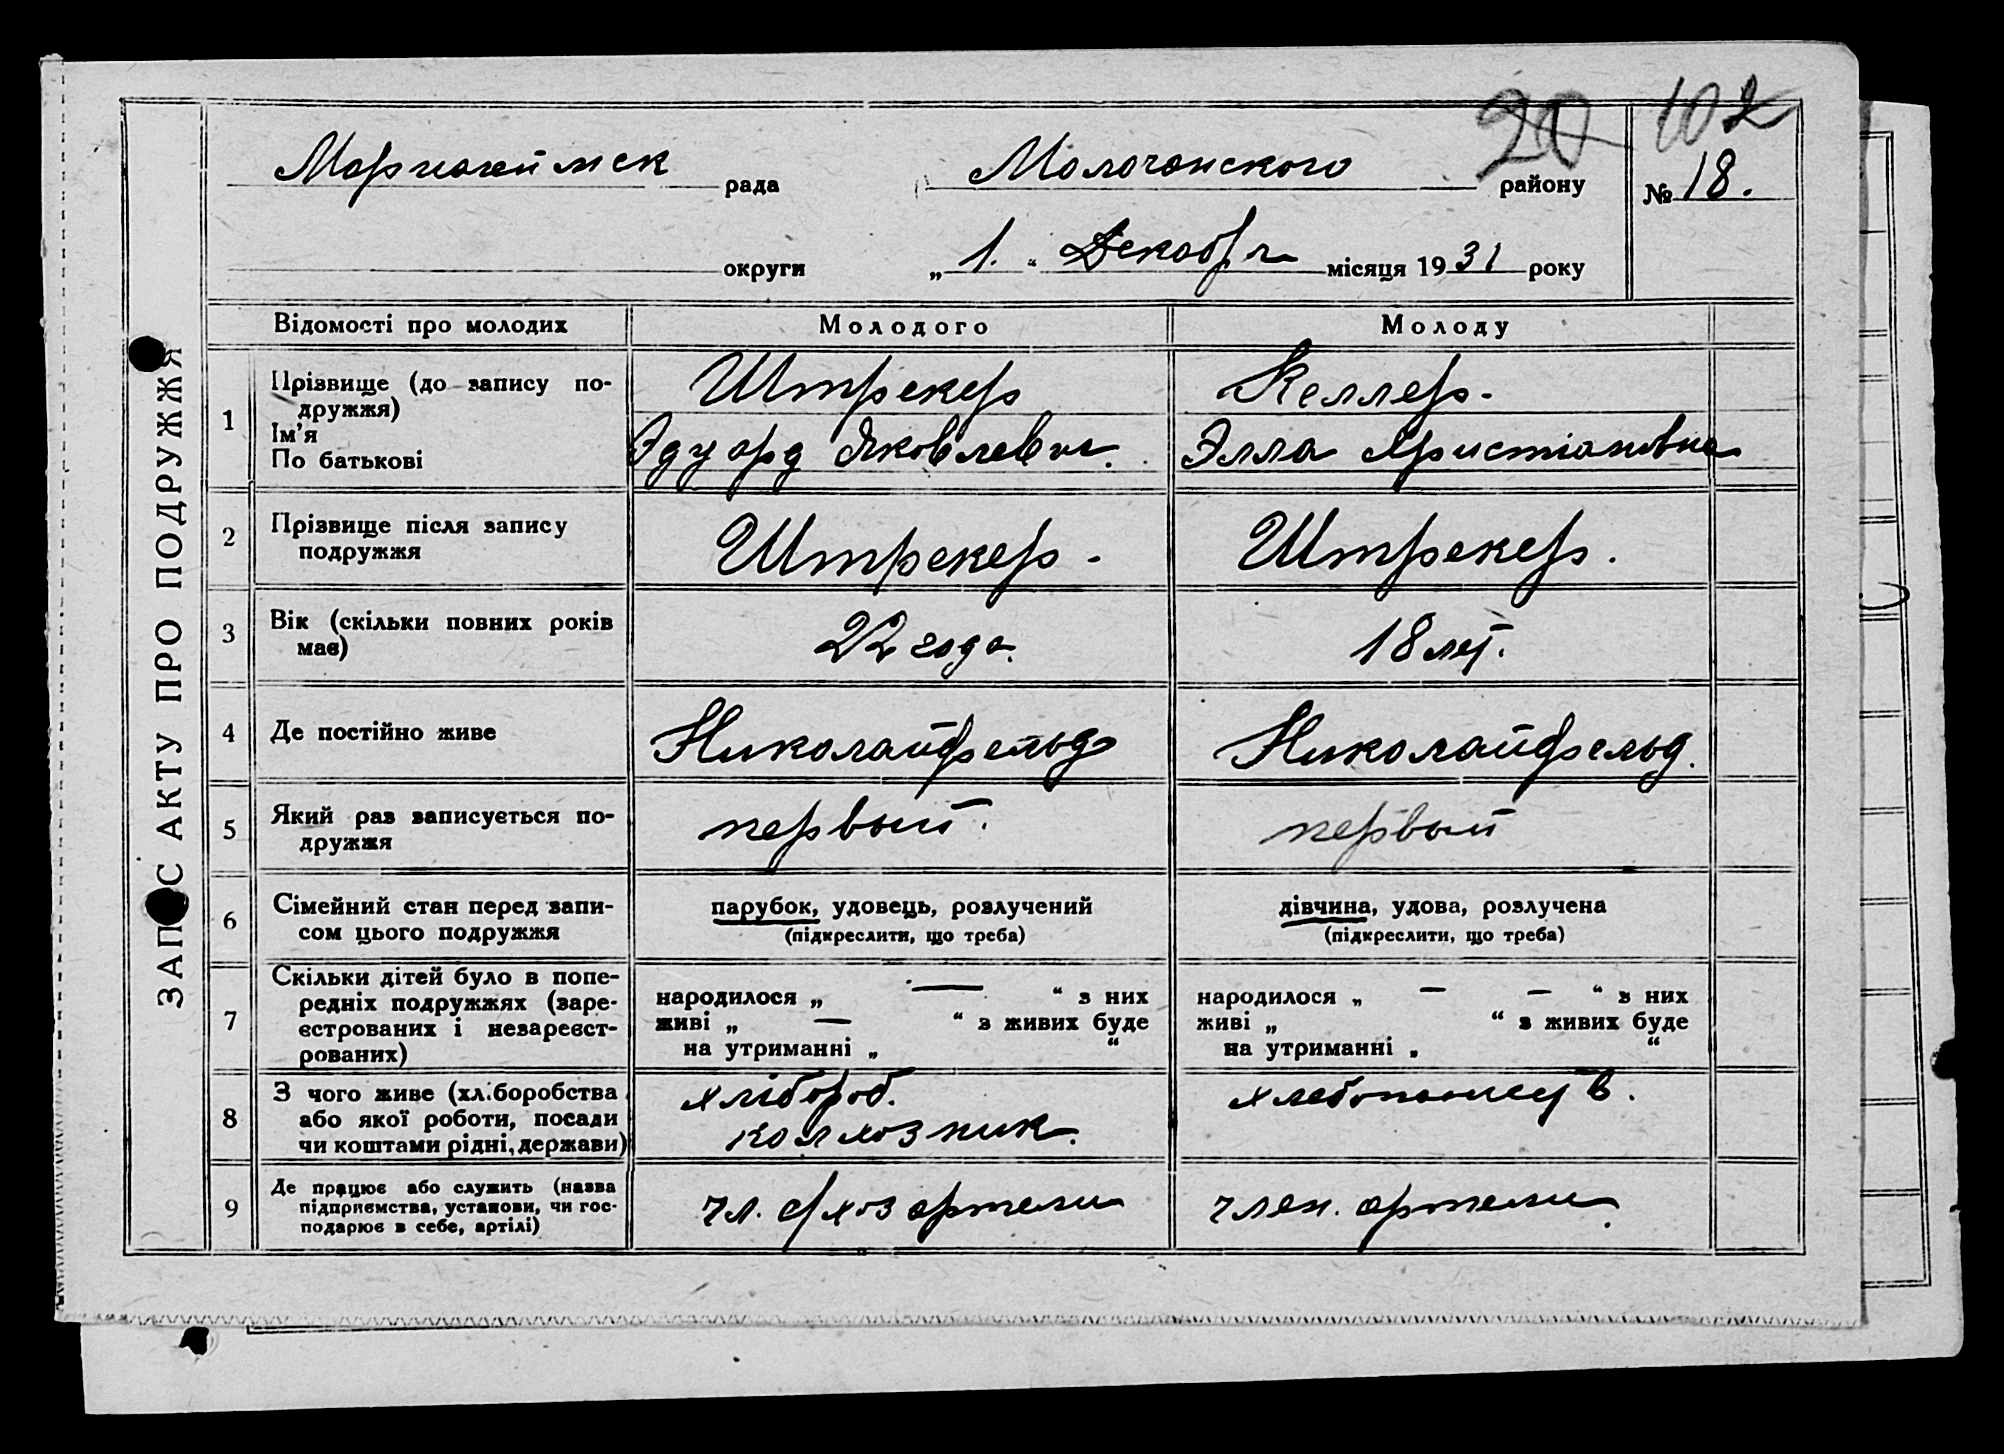 20 102
Мариагеймск рада Молочанского району № 18.
округи „ 1. “ Декабря місяця 1931 року
ЗАПИС АКТУ ПРО ПОДРУЖЖЯ
Відомості про молодих Молодого Молоду
1 Прізвище (до запису по-
дружжя) Штрекер Келлер.
Ім’я
По батькові Эдуард Яковлевич. Элла Христіановна
2 Прізвище після запису
подружжя Штрекер. Штрекер.
3 Вік (скільки повних років
має) 22 года. 18 лет.
4 Де постійно живе Николайфельд Николайфельд.
5 Який раз записується по-
дружжя первый. первый
6 Сімейний стан перед запи-
сом цього подружжя
парубок, удовець, розлучений дівчина, удова, розлучена
(підкреслити, що треба) (підкреслити, що треба)
7 Скільки дітей було в попе-
редніх подружжях (заре-
єстрованих і незареєст-
рованих)
народилося „ — “ з них народилося „ — — “ з них
живі „ — “ з живих буде живі „ “ з живих буде
на утриманні „ “ на утриманні „ “
8 З чого живе (хліборобства
або якої роботи, посади
чи коштами рідні, держави)
хлібороб. хлебопашеств.
колхозник.
9 Де працює або служить (назва
підприємства, установи, чи гос-
подарює в себе, артілі)
чл. с/хоз артели член. артели